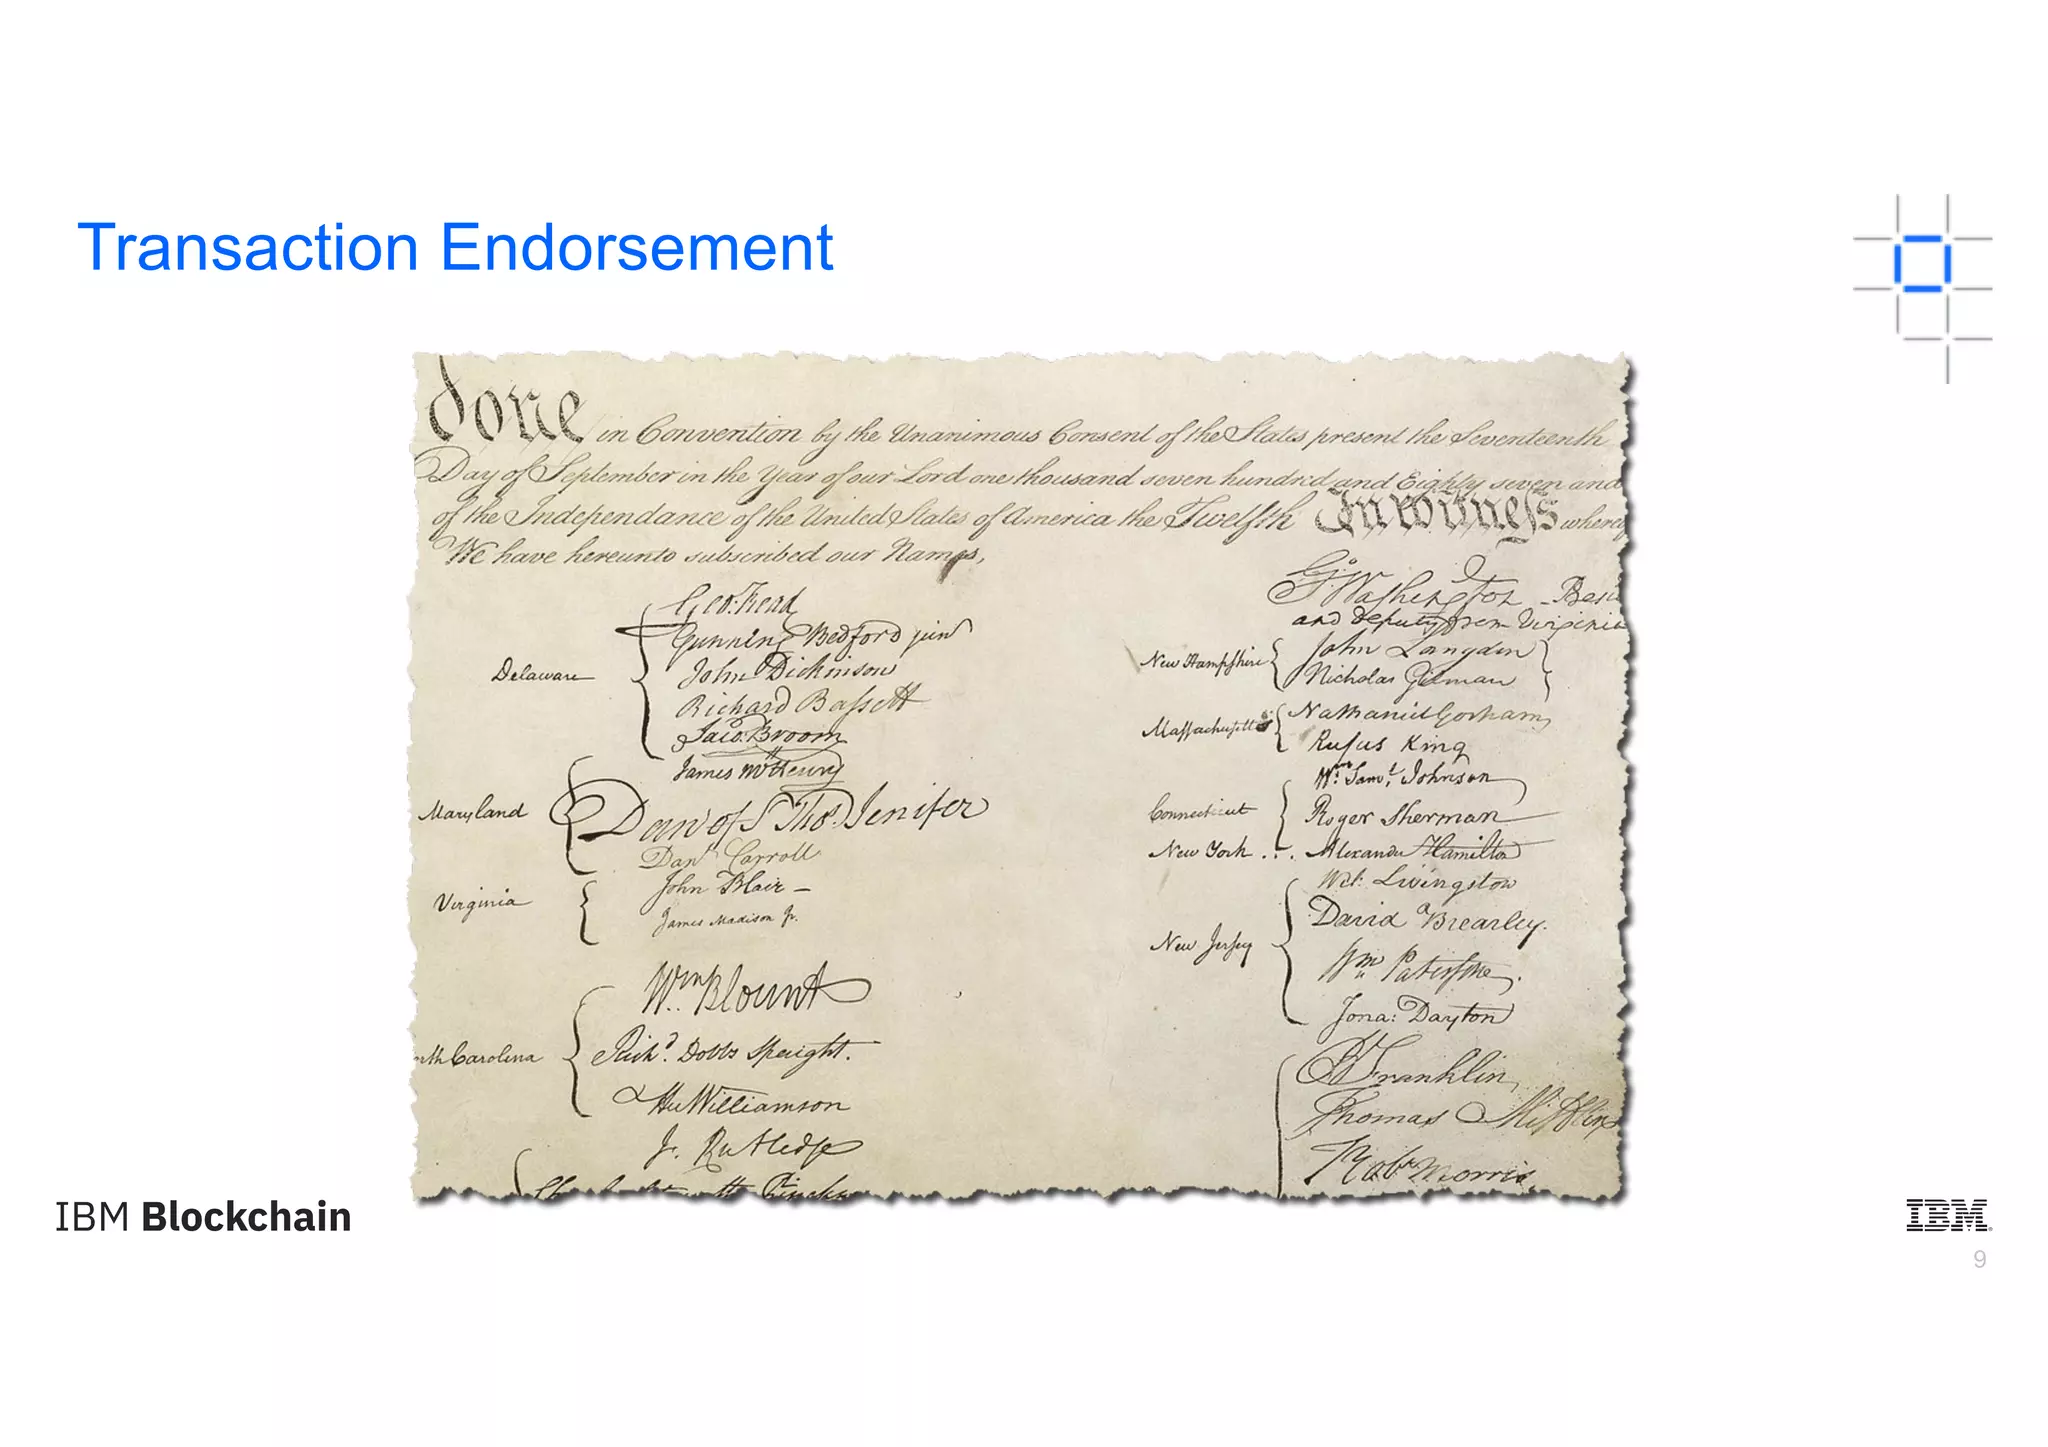 Transaction Endorsement
done in Convention by the Unanimous Consent of the States present the Seventeenth
Day of September in the Year of our Lord one thousand seven hundred and Eighty seven and
of the Independance of the United States of America the Twelfth In witness whereof
We have hereunto subscribed our Names,
Delaware
Geo: Read
Gunning Bedford jun
John Dickinson
Richard Bassett
Jaco: Broom
Maryland
James McHenry
Dan of St Thos. Jenifer
Danl Carroll
Virginia
John Blair –
James Madison Jr.
rth Carolina
Wm. Blount
Richd. Dobbs Spaight.
Hu Williamson
J. Rutledge
Go. Washington –
and deputy from Virginia
New Hampshire
John Langdon
Nicholas Gilman
Massachusetts
Nathaniel Gorham
Rufus King
Connecticut
Wm. Saml. Johnson
Roger Sherman
New York . . .
Alexander Hamilton
New Jersey
Wil: Livingston
David Brearley.
Wm. Paterson.
Jona: Dayton
B Franklin,
Thomas Mifflin
Robt Morris.
IBM Blockchain
IBM
9